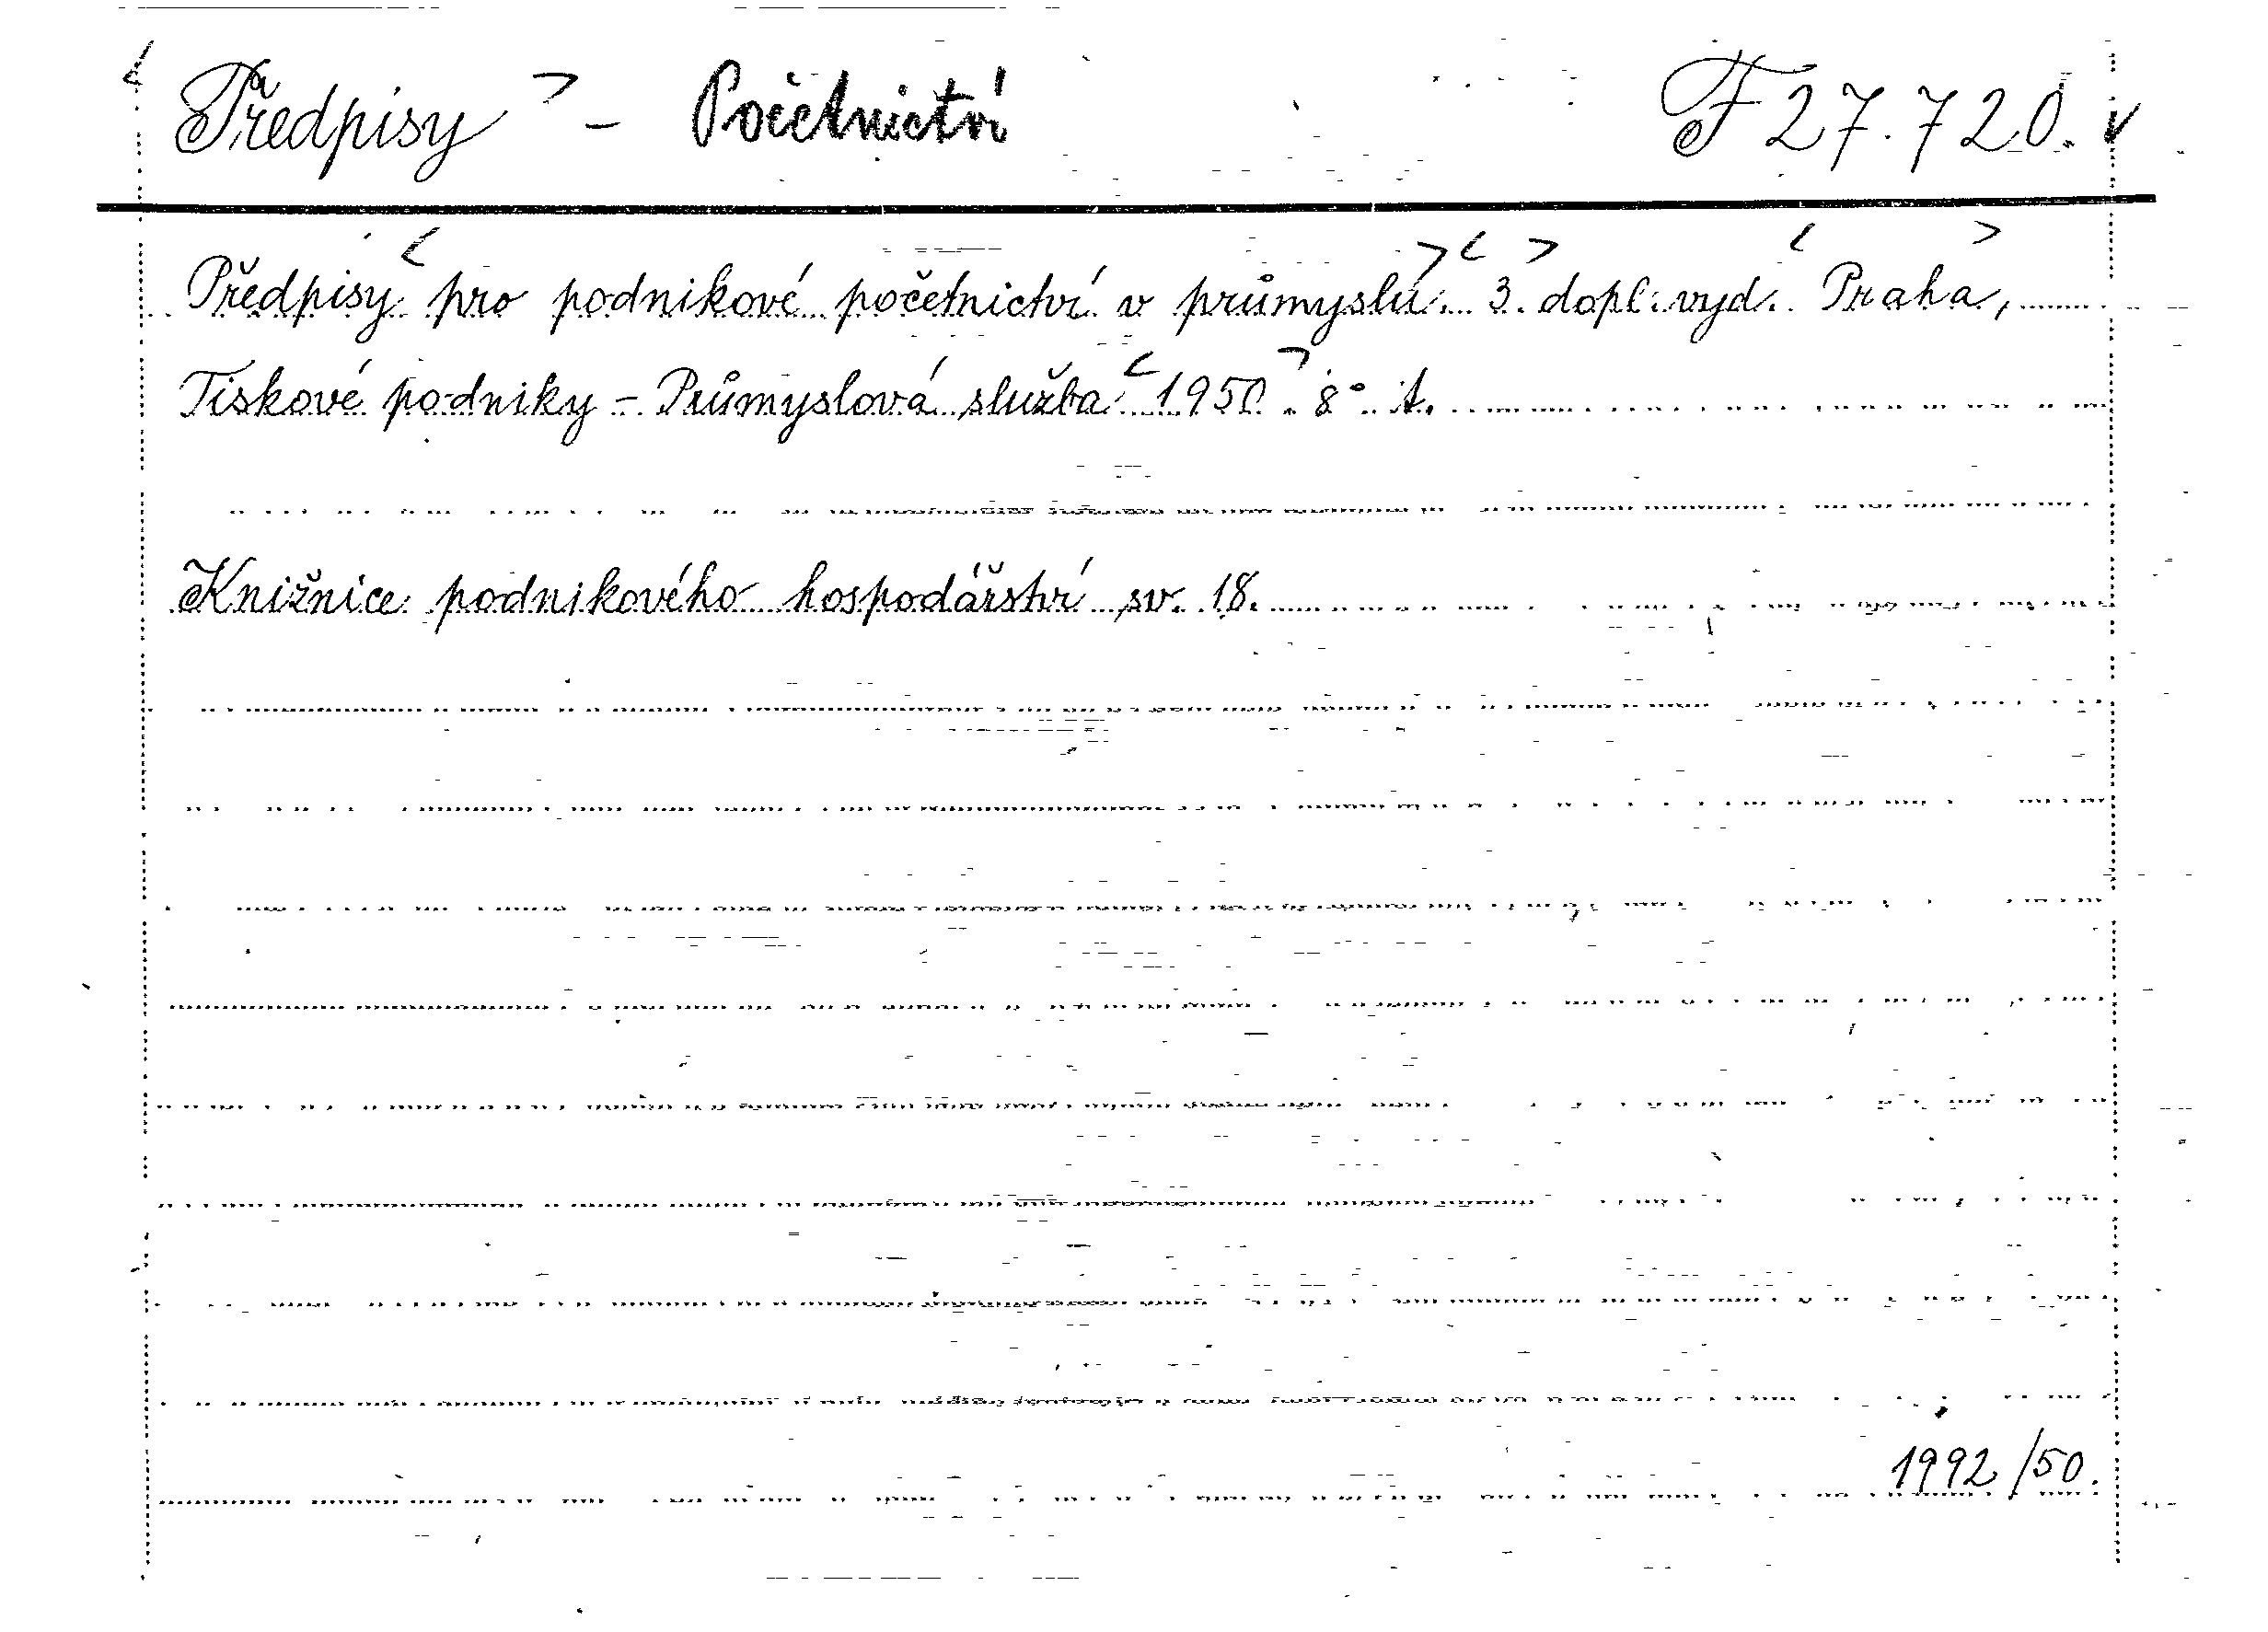 <Předpisy> - Početnictví F 27.720. v
Předpisy <pro podnikové početnictví v průmyslu.> <3.> dopl. vyd. <Praha>,
Tiskové podniky - Průmyslová služba <1950>. 8° t.
Knižnice podnikového hospodářství sv. 18.
1992/50.